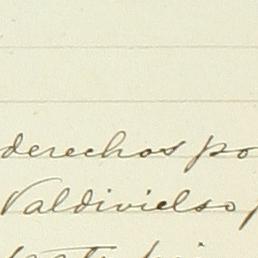 derechos po
Valdivielso